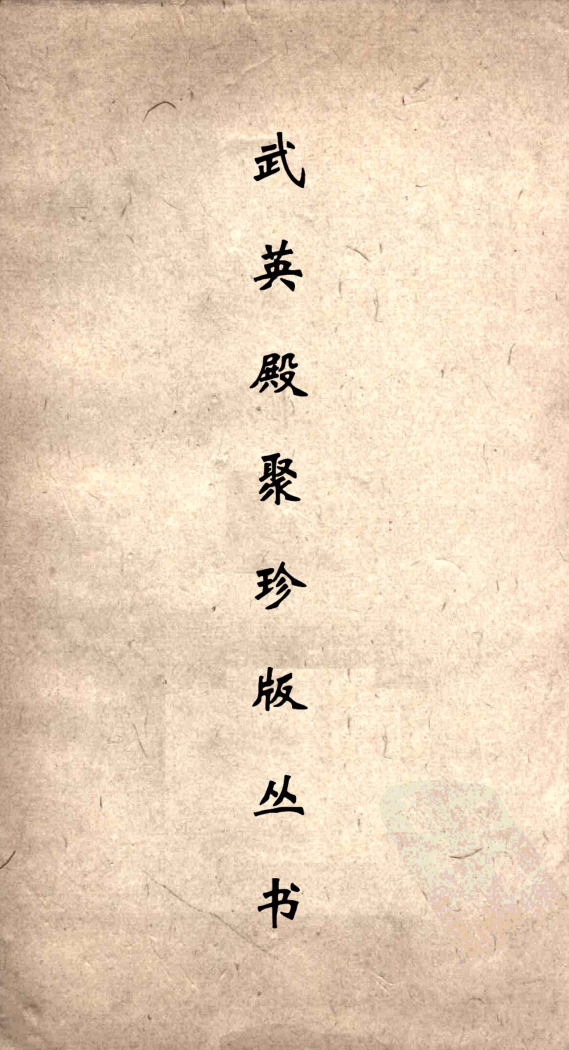 武英殿聚珍版丛书